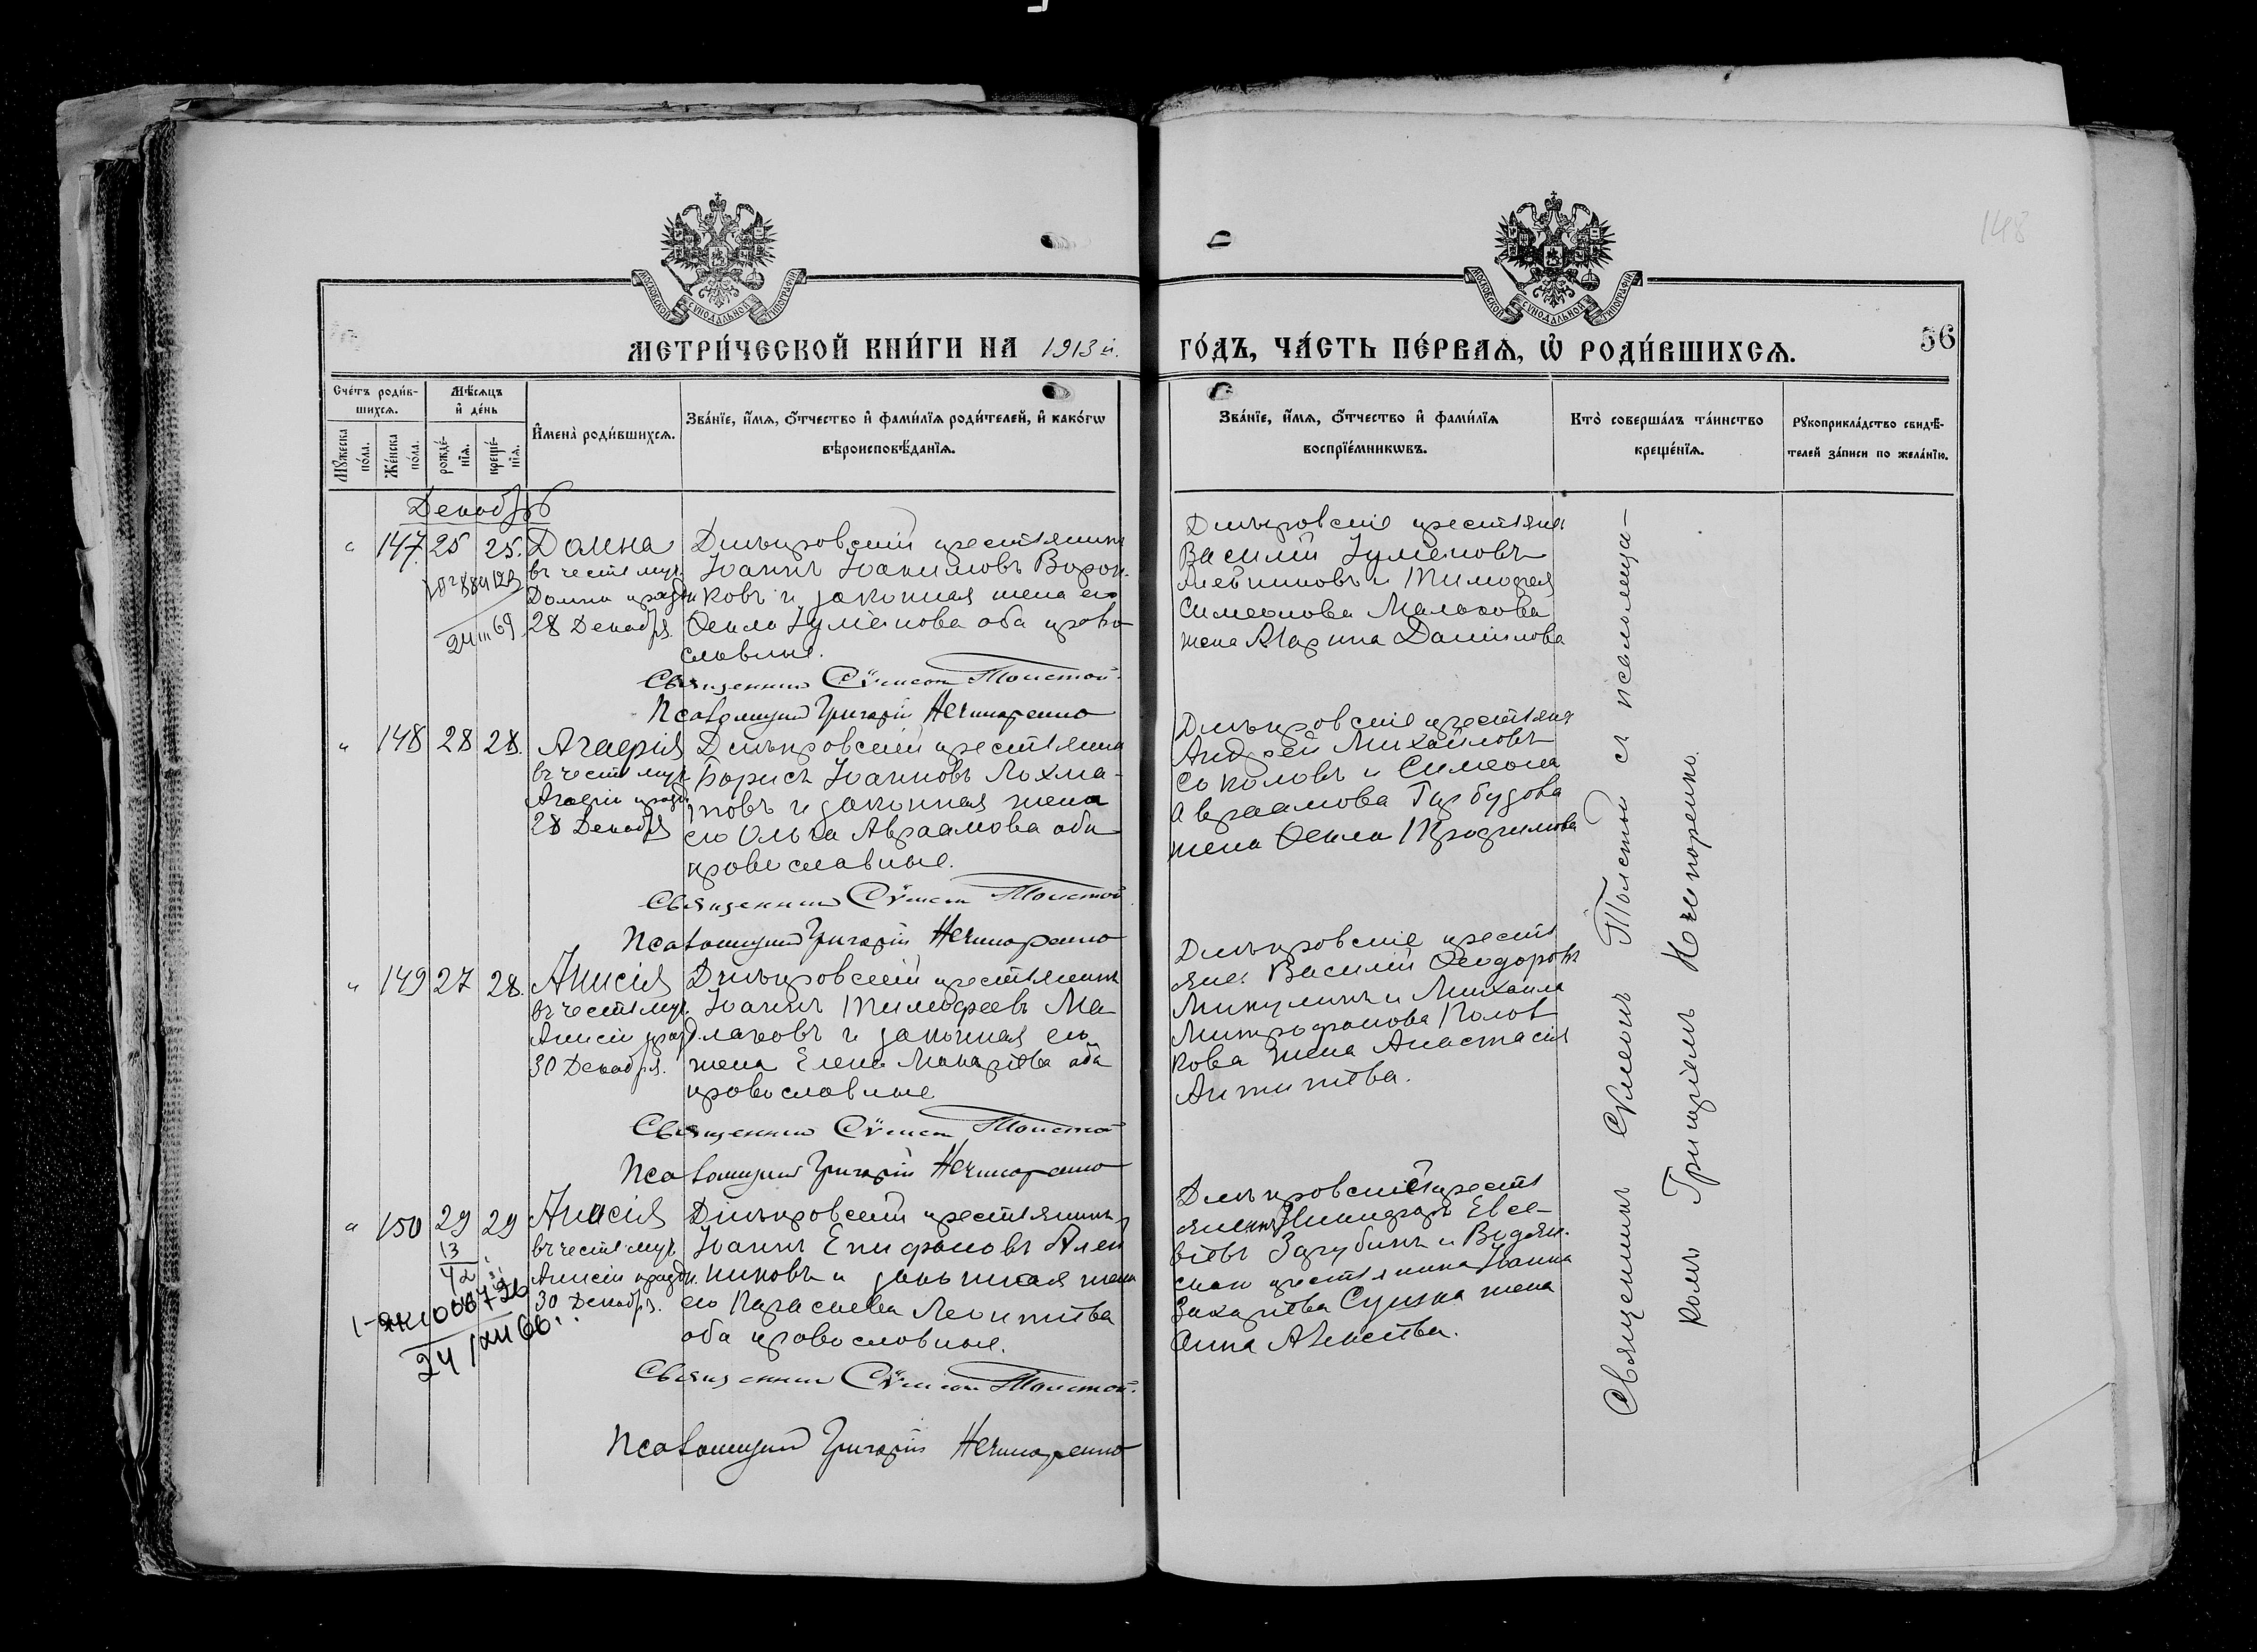 148
МОСКОВСКОЙ СѴНОДАЛЬНОЙ ТИПОГРАФІИ
МОСКОВСКОЙ СѴНОДАЛЬНОЙ ТИПОГРАФІИ
МЕТРИ́ЧЕСКОЙ КНИ́ГИ НА 1913 й.
ГО́ДЪ, ЧА́СТЬ ПЕ́РВАѦ, Ѡ҆ РОДИ́ВШИХСѦ.
56
Сче́тъ роди́в-
шихсѧ.
Мꙋ́жеска
по́ла.
Же́нска
по́ла.
Мѣ́сѧцъ
и҆ де́нь
рожде́-
нїѧ.
креще́-
нїѧ.
И҆мена̀ роди́вшихсѧ.
Зва́нїе, и҆́мѧ, ѻ҆́тчество и҆ фами́лїѧ роди́телей, и҆ како́гѡ
вѣроисповѣ́данїѧ.
Зва́нїе, и҆́мѧ, ѻ҆́тчество и҆ фами́лїѧ
воспрїе́мникѡвъ.
Кто̀ соверша́лъ та́инство
креще́нїѧ.
Рꙋкоприкла́дство свидѣ́-
телей за́писи по жела́нїю.
Декабрь
" 147. 25 25. Домна
въ честь муч.
Домны праздн
28 Декабря.
24 III 69
Дмитровскій крестьянинъ
Іоаннъ Іоакимовъ Ворон-
ковъ и законная жена его
Ѳекла Гуменова оба право
славные.
Священник Сѵмеон Толстой.
Псаломщик Григорій Нечипоренко
Дмитровскіе крестьяне
Василій Гуменовъ
Алейниковъ и Тимоѳея
Симеонова Малахова
жена Марина Даніилова
" 148 28 28. Агаѳія
въ честь муч.
Агаѳіи праздн
28 Декабря
Дмитровскій крестьянинъ
Борисъ Іоанновъ Лохма-
товъ и законная жена
его Ольга Авраамова оба
православные.
Священник Сѵмеон Толстой
Псаломщик Григорій Нечипоренко
Дмитровскіе крестьяне
Андрей Михайловъ
Соколовъ и Симеона
Авраамова Гарбузова
жена Ѳекла Трофимова
" 149 27 28. Анисія
въ честь муч.
Анисіи празд
30 Декабря.
Дмитровскій крестьянинъ
Іоаннъ Тимоѳеевъ Ма
лаховъ и законная его
жена Елена Макаріева оба
православные
Священник Сѵмеон Толстой
Псаломщик Григорій Нечипоренко
Дмитровскіе кресть
яне: Василій Ѳеодоровъ
Микулинъ и Михаила
Митрофанова Полов
кова жена Анастасія
Антипіева.
" 150 29 29 Анисія
въ честь муч.
Анисіи праздн.
30 Декабря.
13
42
24/XII 66.
Дмитровскій крестьянинъ
Іоаннъ Епифановъ Алей
никовъ и законная жена
его Параскева Леонтіева
оба православные.
Священник Сѵмеон Толстой.
Псаломщик Григорій Нечипоренко
Дмитровскій кресть
янинъ Никифоръ Евсе-
віевъ Зарубинъ и Водян.
скаго крестьянина Іоанна
Захаріева Сушка жена
Анна Алексіева.
Священникъ Сѵмеонъ Толстой съ псаломщи-
комъ Григоріемъ Нечипоренко.